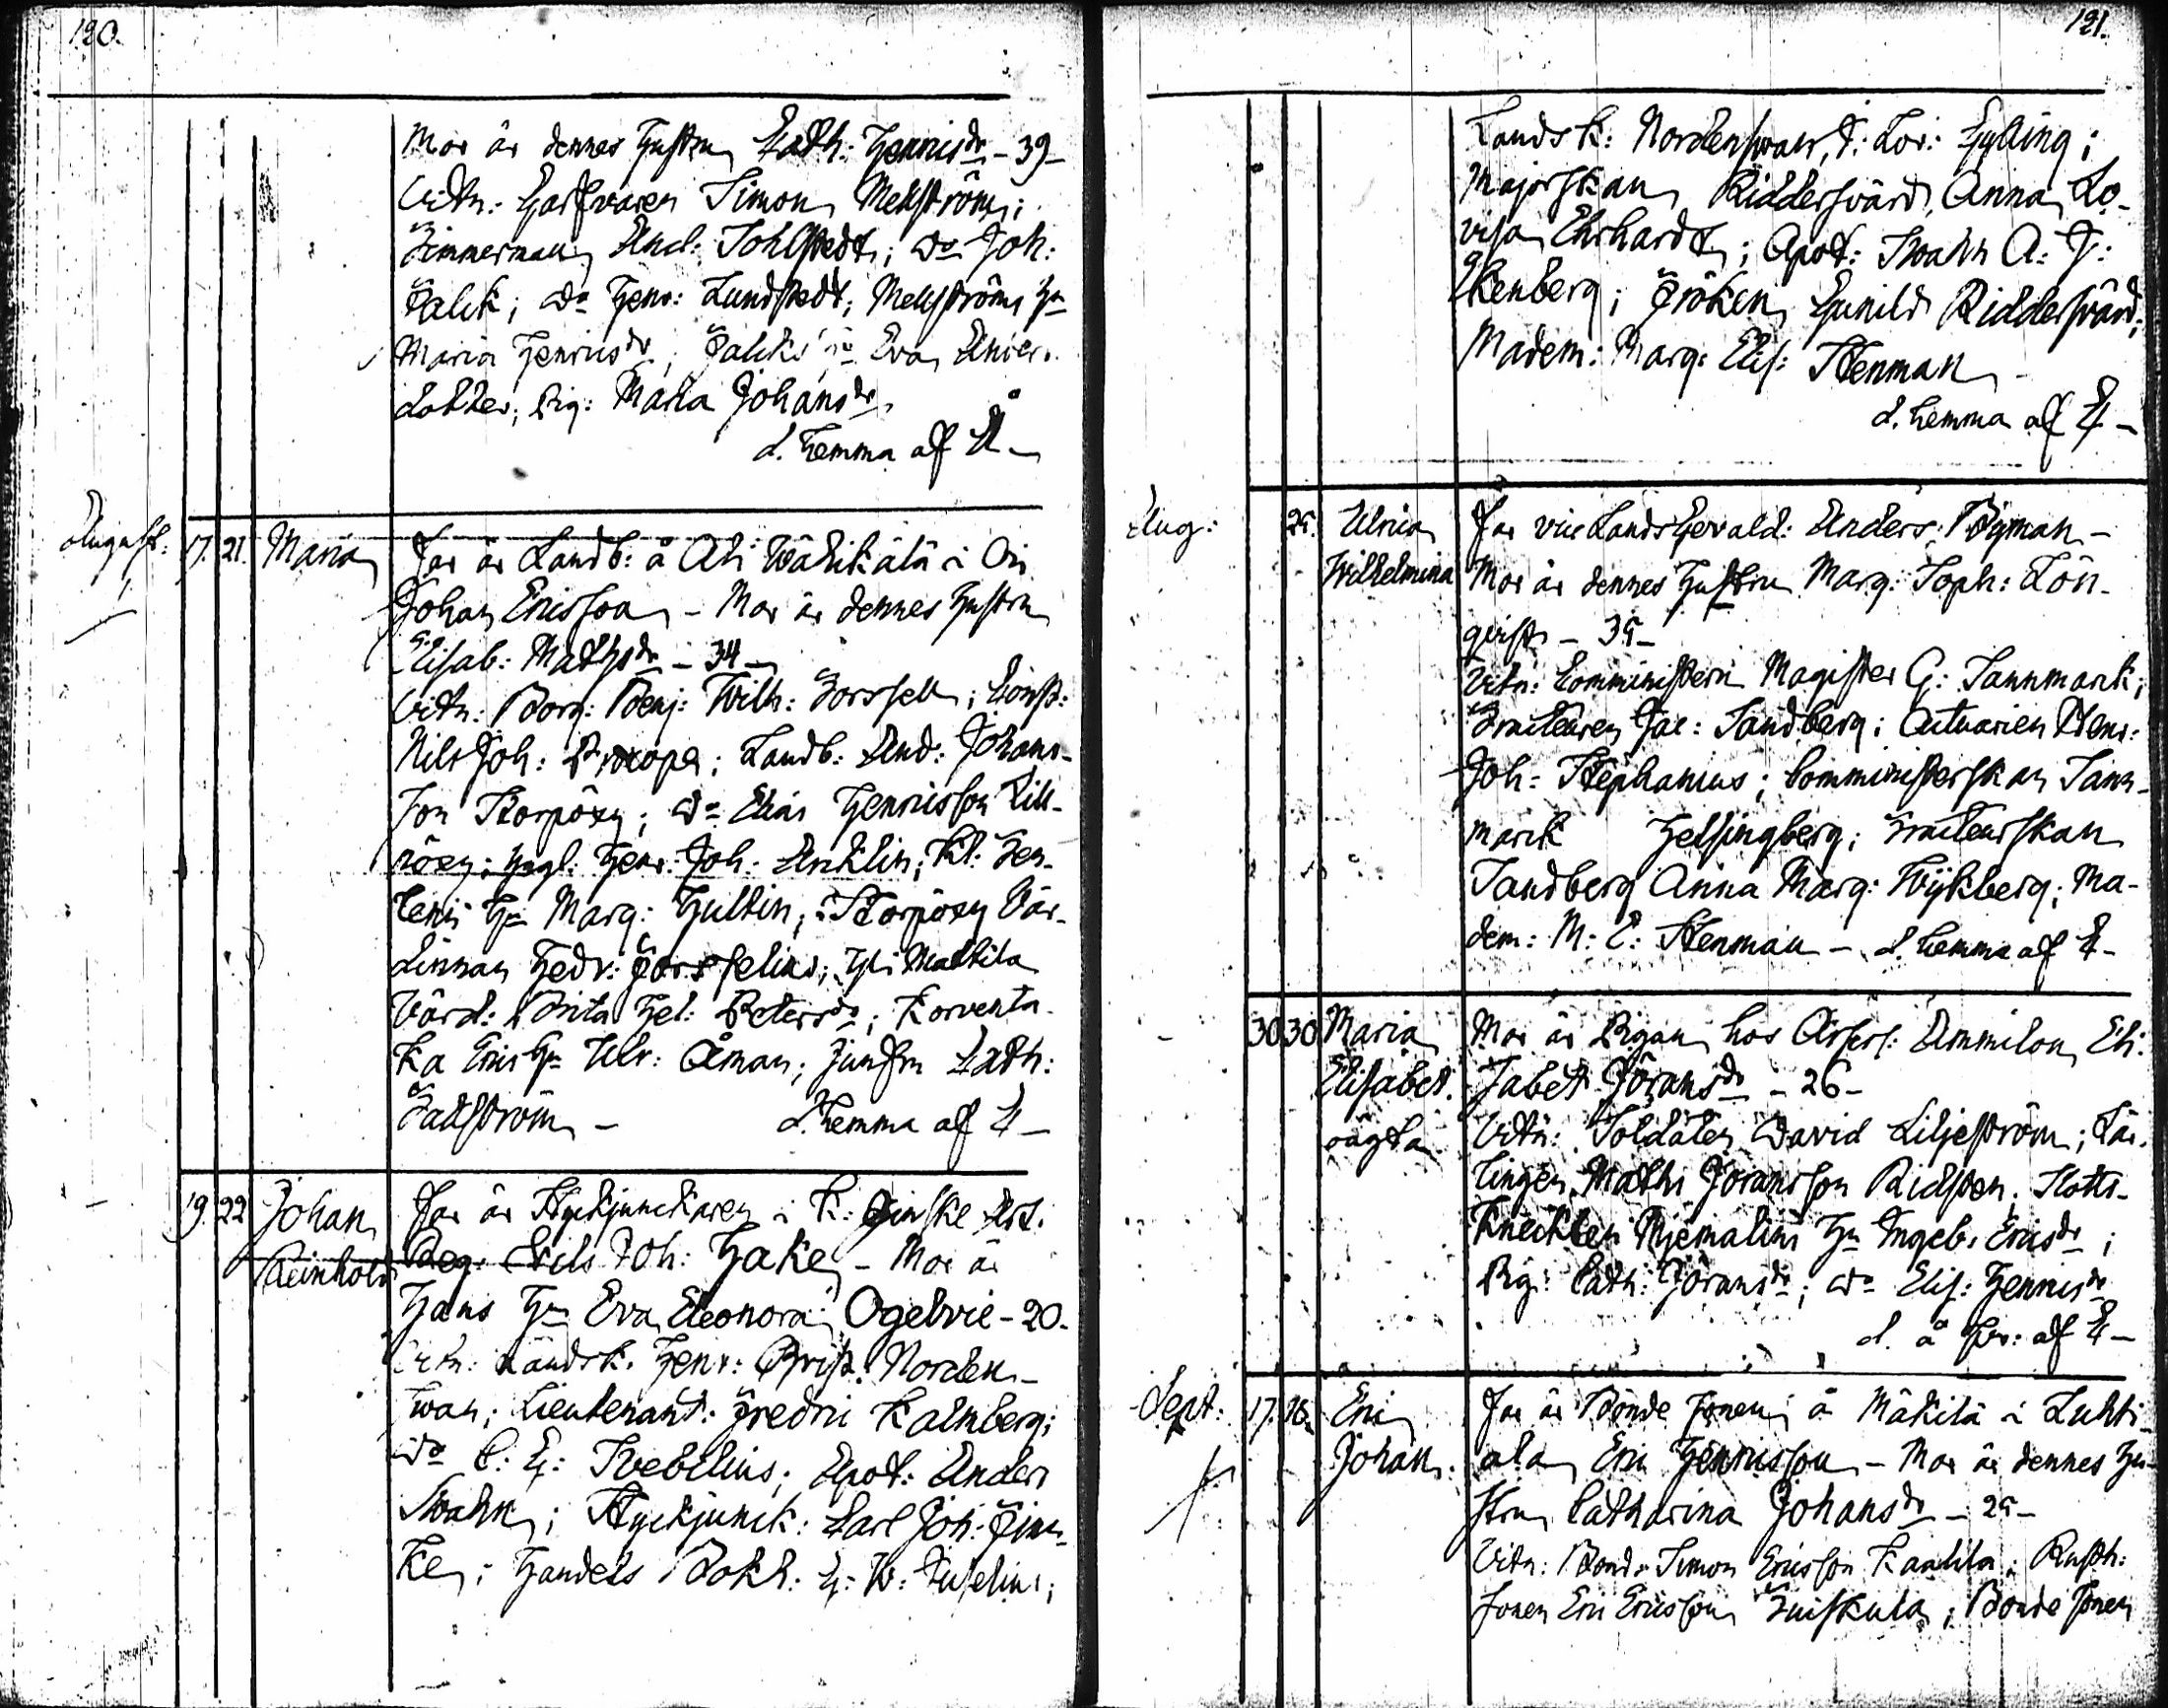 120.
Mor är dennes Hustru Cath: Henricsdr – 39 –
Vitn: Garfvaren Simon Mellström;
Timmerman And: Sohlstedt; Do Joh:
Falck; Do Henr: Lundstedt; Mellströms Hu
Maria Henricsdr; Falcks Hu Eva Anders
dotter; Pig: Maria Johansdr.
d. hemma af
August: 17. 21. Maria
Far är Landb: å Ali Wähikälä i Ori
Johan Ericsson – Mor är dennes Hustru
Elisab: Mathsdr – 34 –
Vitn: Borg: Benj: Wilh: Forssell; Const:
Nils Joh: Procope; Landb: And: Johans-
son Storpöxy; Do Elias Henricsson Lill-
pöxy; Joh: Anklin; Kl:
Hu Marg: Hultin; Storpöxy Vär-
dinnan Hedv: Forsselius; Yli Mattila
Värd: Brita Hel: Petersdr; Korventa-
ka Erics Hu Ulr: Åman; Jungfru Cath:
Fallström – d. hemma af
19. 22 Johan
Reinhold
Far är Styckjunckaren i K: Finske Art.
Reg: Nils Joh: Hake – Mor är
Hans Hu Eva Eleonora Ogelvie – 20.
Vitn: Landsk. Henr: Christ: Norden-
swan; Lieutenant: Fredric Kalmberg;
Do C: G: Svebilius; Apot: Anders
Swahn; Styckjunck: Carl Joh: Finc-
ke; Handels Bokh: G: W: Tuselius;
121.
Landsk: Nordenswan, f: Lov: Gylling;
Majorskan Riddersvärd, Anna Lo-
visa Ehrhardt; Apot: Swahn A: J:
Ekenberg; Fröken Gunild Riddersvärd;
Madem: Marg: Elis: Stenman –
d. hemma af
Aug: 25. Ulrica
Wilhelmina
Far vice Lands Gevald: Anders Byman –
Mor är dennes Hustru Marg: Soph: Lön-
qvist – 35 –
Vitn: Comministern Magister G: Sannmark;
Traiteuren Jac: Sandberg; Actuarien Henr:
Joh: Stephanus; Comministerskan Sann-
mark Helsingberg; Traiteurskan
Sandberg Anna Marg: Wijkberg; Ma-
dem: M: E: Stenman – d. hemma af
30 30 Maria
Elisabet.
oägta
Mor är Pigan hos Assess: Ammilon Eli-
sabet Göransdr – 26 –
Vitn: Soldaten David Liljeström; Lär-
lingen Maths Göransson Ridsten. Slotts-
Knecktens Hjemalins Hu Ingeb: Ericsdr;
Pig: Cath: Göransdr; Do Elis: Henricsdr
d. å af
Sept: 17. 18. Eric
Johan.
Far är Bonde Sonen å Mäkilä i Luhti-
ala Eric Henricsson – Mor är dennes Hu-
stru Catharina Johansdr – 25 –
Vitn: Bond: Simon Ericsson Kaalila; Rusth:
Sonen Eric Ericsson Iniskula; Bonde Sonen